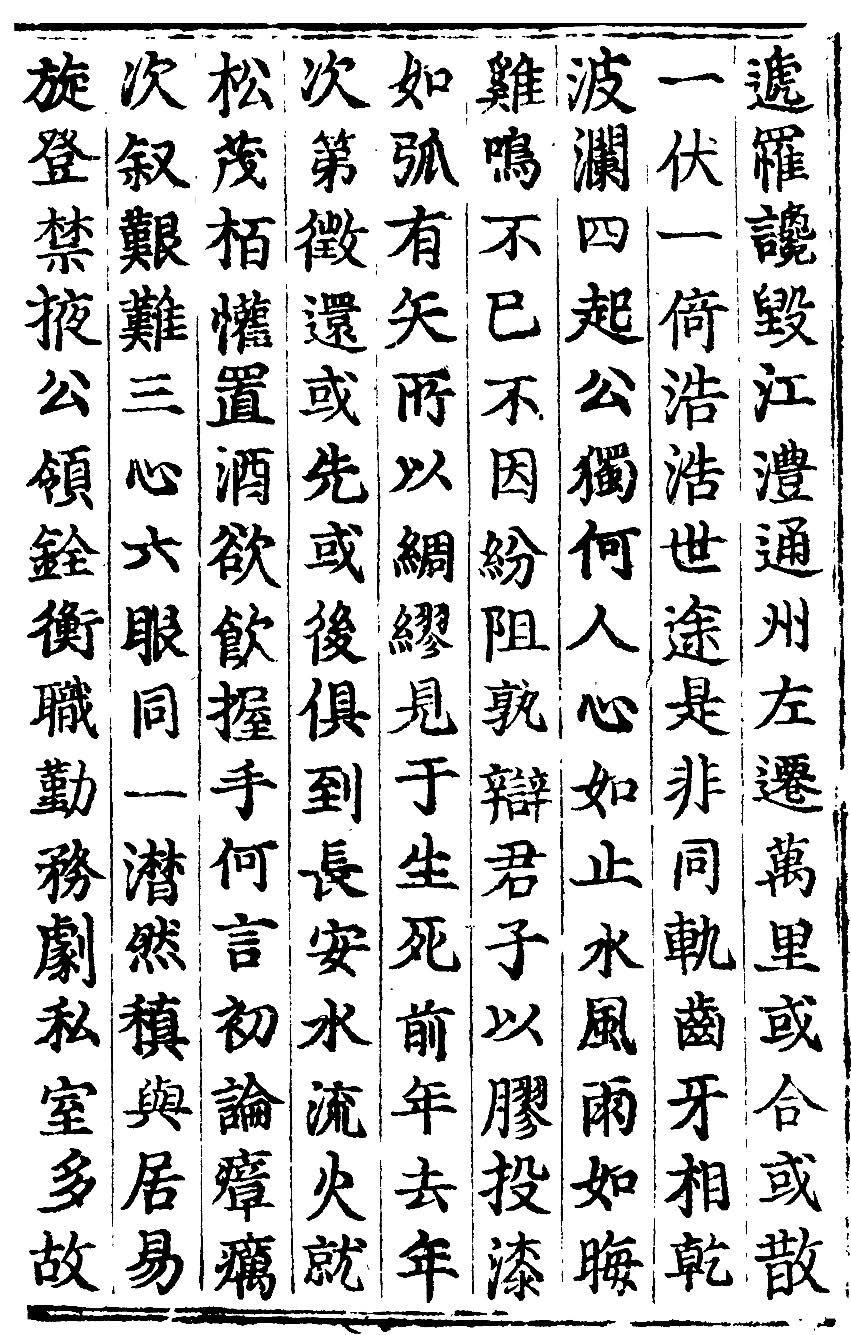 遞罹讒毀江澧通州左遷萬里或合或散
一伏一倚浩浩世途是非同軌齒牙相軋
波瀾四起公獨何人心如止水風雨如晦
雞鳴不已不因紛阻孰辯君子以膠投漆
如弧有矢所以綢繆見于生死前年去年
次第徵還或先或後俱到長安水流火就
松茂柏懽置酒欲飲握手何言初論瘴癘
次叙艱難三心六眼同一潸然稹與居易
旋登禁掖公領銓衡職勤務劇私室多故